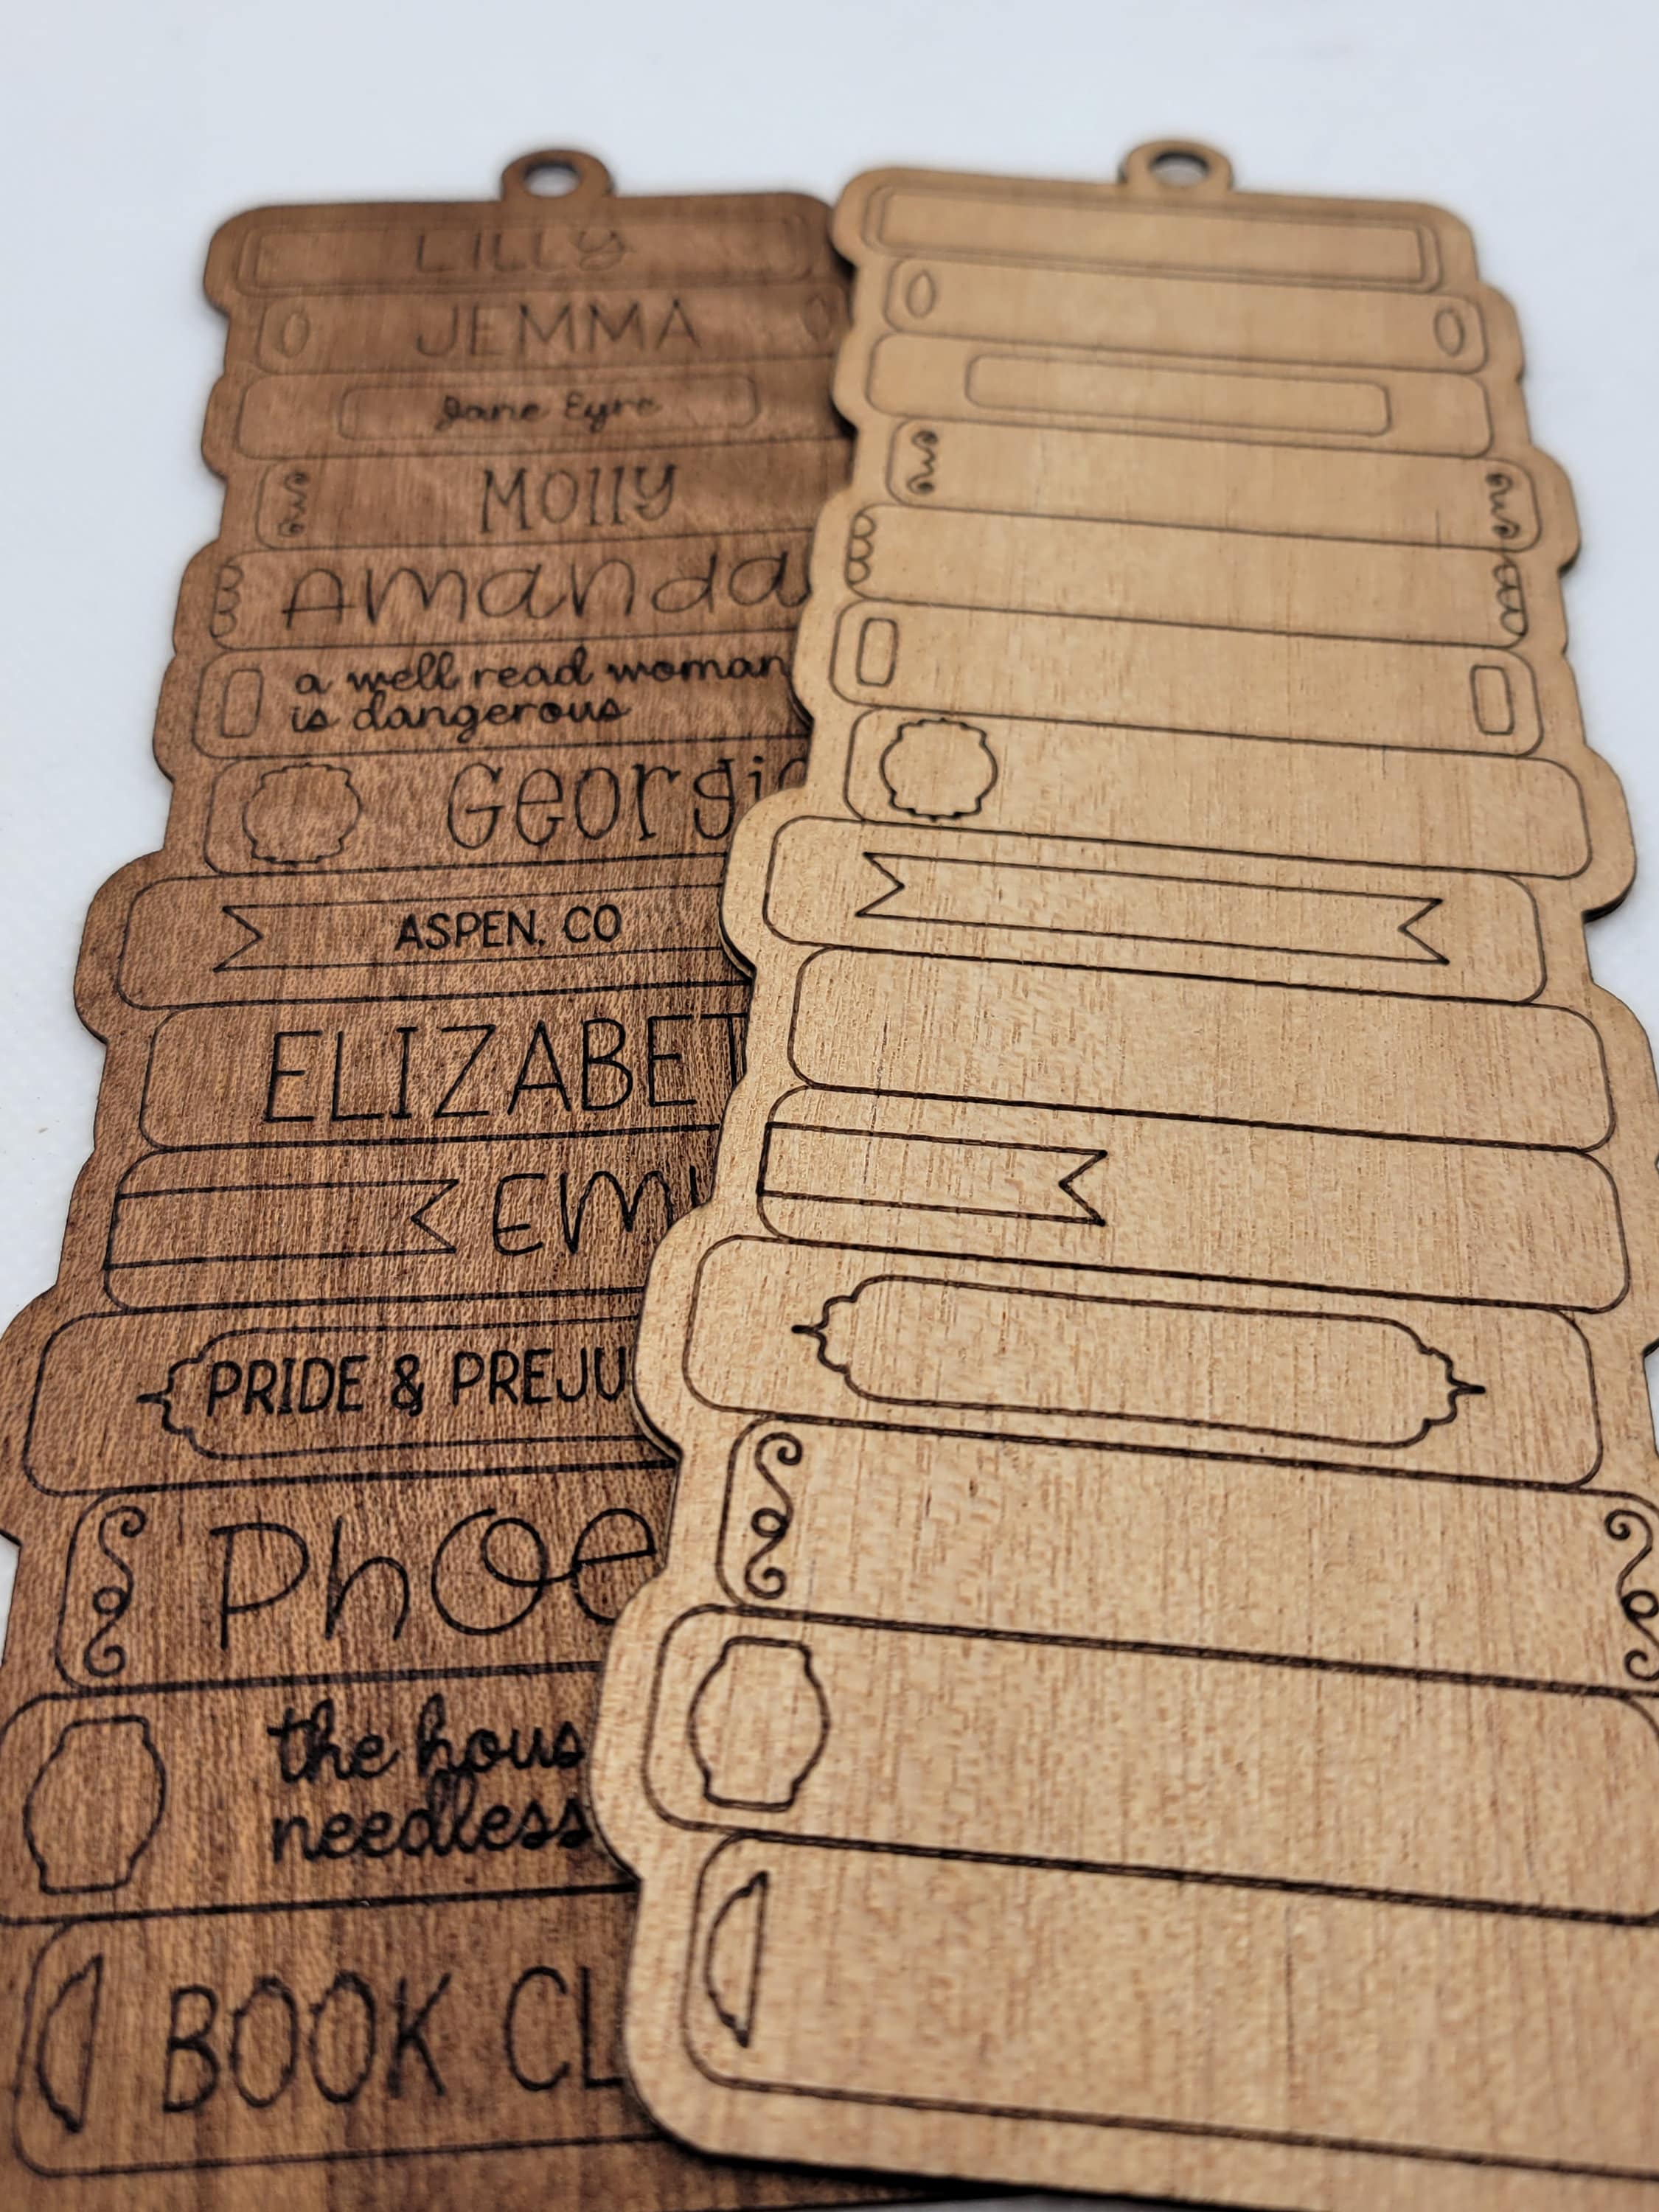 LILLY
JEMMA
Jane Eyre
MOllY
Amanda
a well read woman
is dangerous
Georgi
ASPEN, CO
ELIZABET
EM
PRIDE & PREJU
PhOe
the hous
needless
BOOK CL